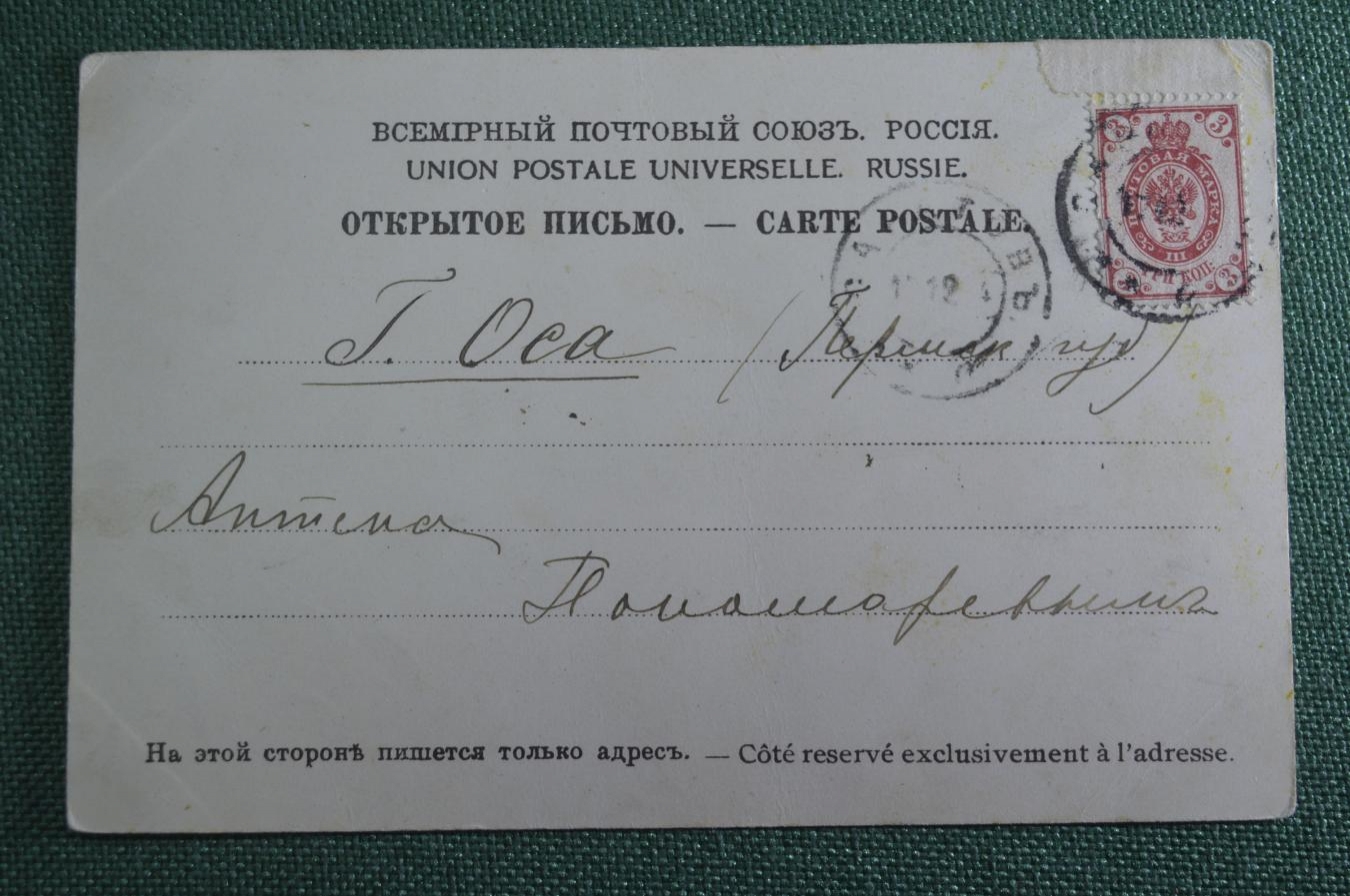 ВСЕМІРНЫЙ ПОЧТОВЫЙ СОЮЗЪ. РОССІЯ.
UNION POSTALE UNIVERSELLE. RUSSIE.
ОТКРЫТОЕ ПИСЬМО. — CARTE POSTALE.
3 3
ПОЧТОВАЯ МАРКА
III
ТРИ КОП.
3 3
12
Г. Оса (Пермск губ)
Аптека
Пономаревымъ
На этой сторонѣ пишется только адресъ. — Côté reservé exclusivement à l'adresse.